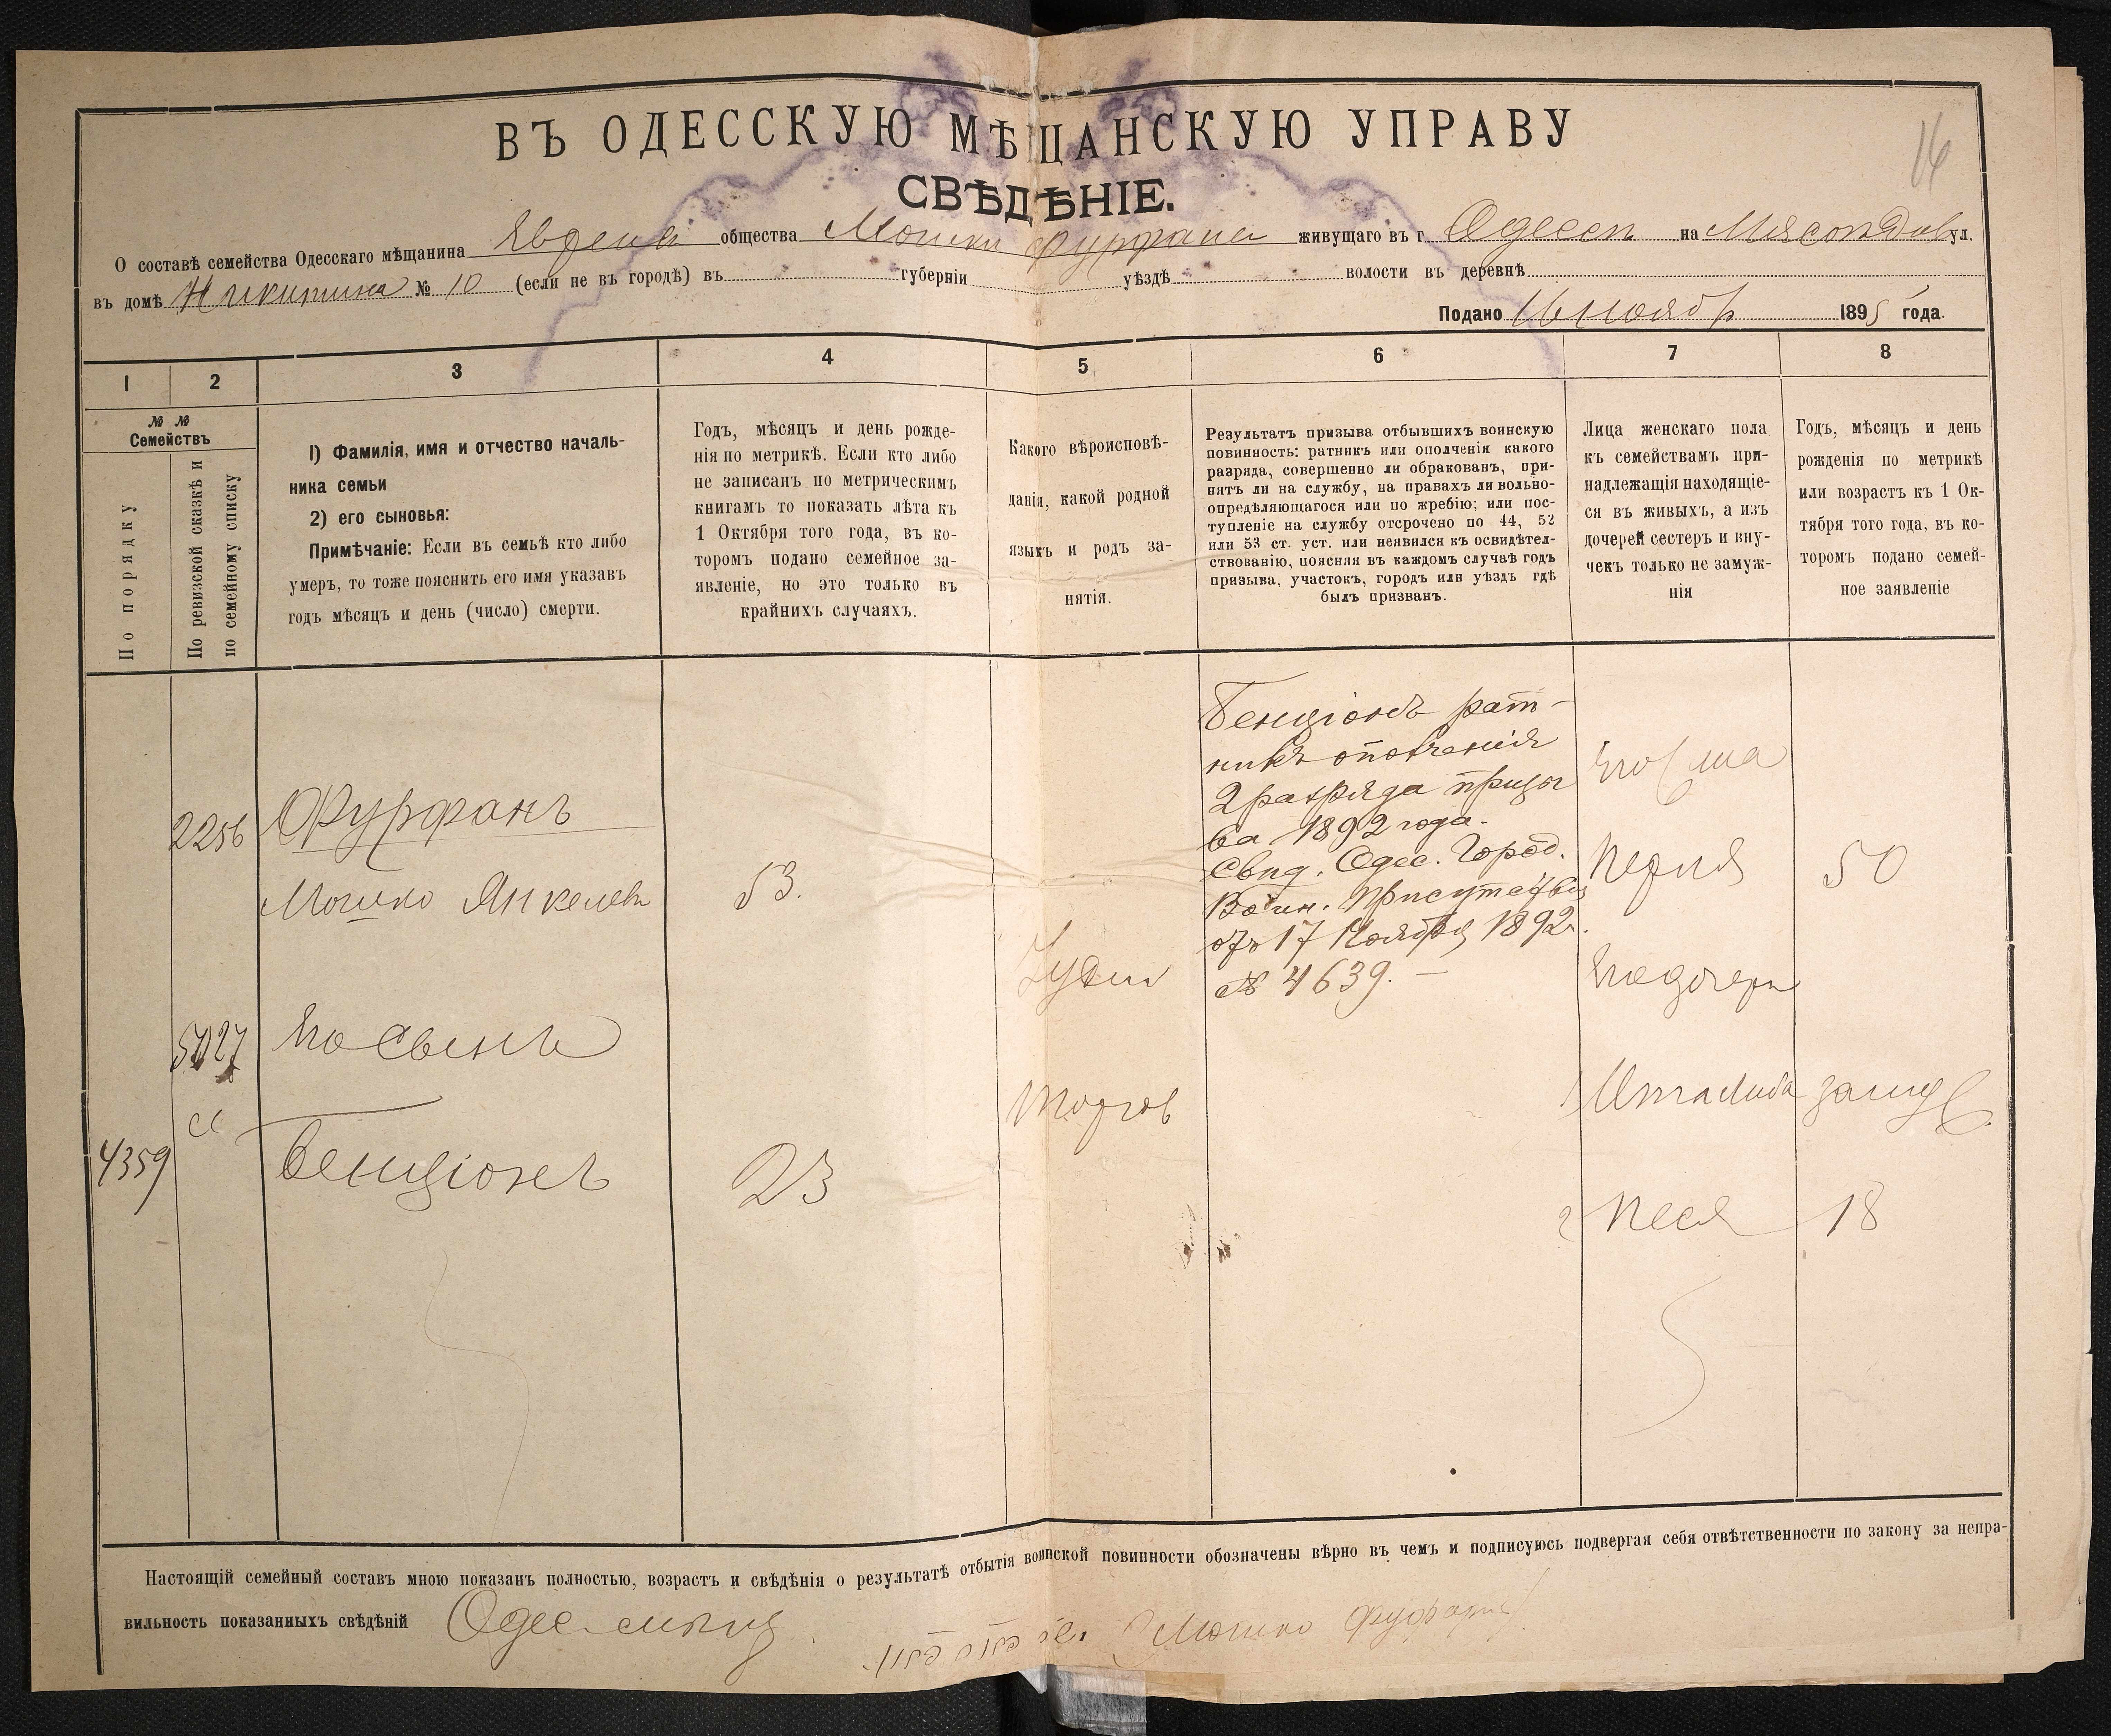 ВЪ ОДЕССКУЮ МѢЩАНСКУЮ УПРАВУ
СВѢДѢНІЕ.
16
О составѣ семейства Одесскаго мѣщанина Еврея общества Мошки Фурфана живущаго въ г. Одессѣ на Мясоѣдов ул.
въ домѣ Никитина № 10 (если не въ городѣ) въ губерніи уѣздѣ волости въ деревнѣ
Подано 16 Ноябр 1895 года.
1 2 3 4 5 6 7 8
№ №
Семействъ
По порядку
По ревизской сказкѣ и
по семейному списку
1) Фамилія, имя и отчество началь-
ника семьи
2) его сыновья:
Примѣчаніе: Если въ семьѣ кто либо
умеръ, то тоже пояснить его имя указавъ
годъ мѣсяцъ и день (число) смерти.
Годъ, мѣсяцъ и день рожде-
нія по метрикѣ. Если кто либо
не записанъ по метрическимъ
книгамъ то показать лѣта къ
1 Октября того года, въ ко-
торомъ подано семейное за-
явленіе, но это только въ
крайнихъ случаяхъ.
Какого вѣроисповѣ-
данія, какой родной
языкъ и родъ за-
нятія.
Результатъ призыва отбывшихъ воинскую
повинность: ратникъ или ополченія какого
разряда, совершенно ли обракованъ, при-
нятъ ли на службу, на правахъ ли вольно-
опредѣляющагося или по жребію; или пос-
тупленіе на службу отсрочено по 44, 52
или 53 ст. уст. или неявился къ освидѣтел-
ствованію, поясняя въ каждомъ случаѣ годъ
призыва, участокъ, городъ или уѣздъ гдѣ
былъ призванъ.
Лица женскаго пола
къ семействамъ при-
надлежащія находящіе-
ся въ живыхъ, а изъ
дочерей сестеръ и вну-
чекъ только не замуж-
нія
Годъ, мѣсяцъ и день
рожденія по метрикѣ
или возрастъ къ 1 Ок-
тября того года, въ ко-
торомъ подано семей-
ное заявленіе
2256
Фурфанъ
Мошко Янкелевъ
53.
5027
Его Сынъ
4359
Бенціонъ
23
Іудей
Торгов
Бенціонъ рат-
никъ ополченія
2 разряда призы
ва 1892 года.
Свид. Одес. Город.
Воин. Присутствія
отъ 17 Ноября 1892 г.
№ 4639. —
Его жена
Перля 50
Его дочери
1 Итталиба замуж
2 Песя 18
Настоящій семейный составъ мною показанъ полностью, возрастъ и свѣдѣнія о результатѣ отбытія воинской повинности обозначены вѣрно въ чемъ и подписуюсь подвергая себя отвѣтственности по закону за непра-
вильность показанныхъ свѣдѣній Одес. мѣщ Мошко Фурфанъ